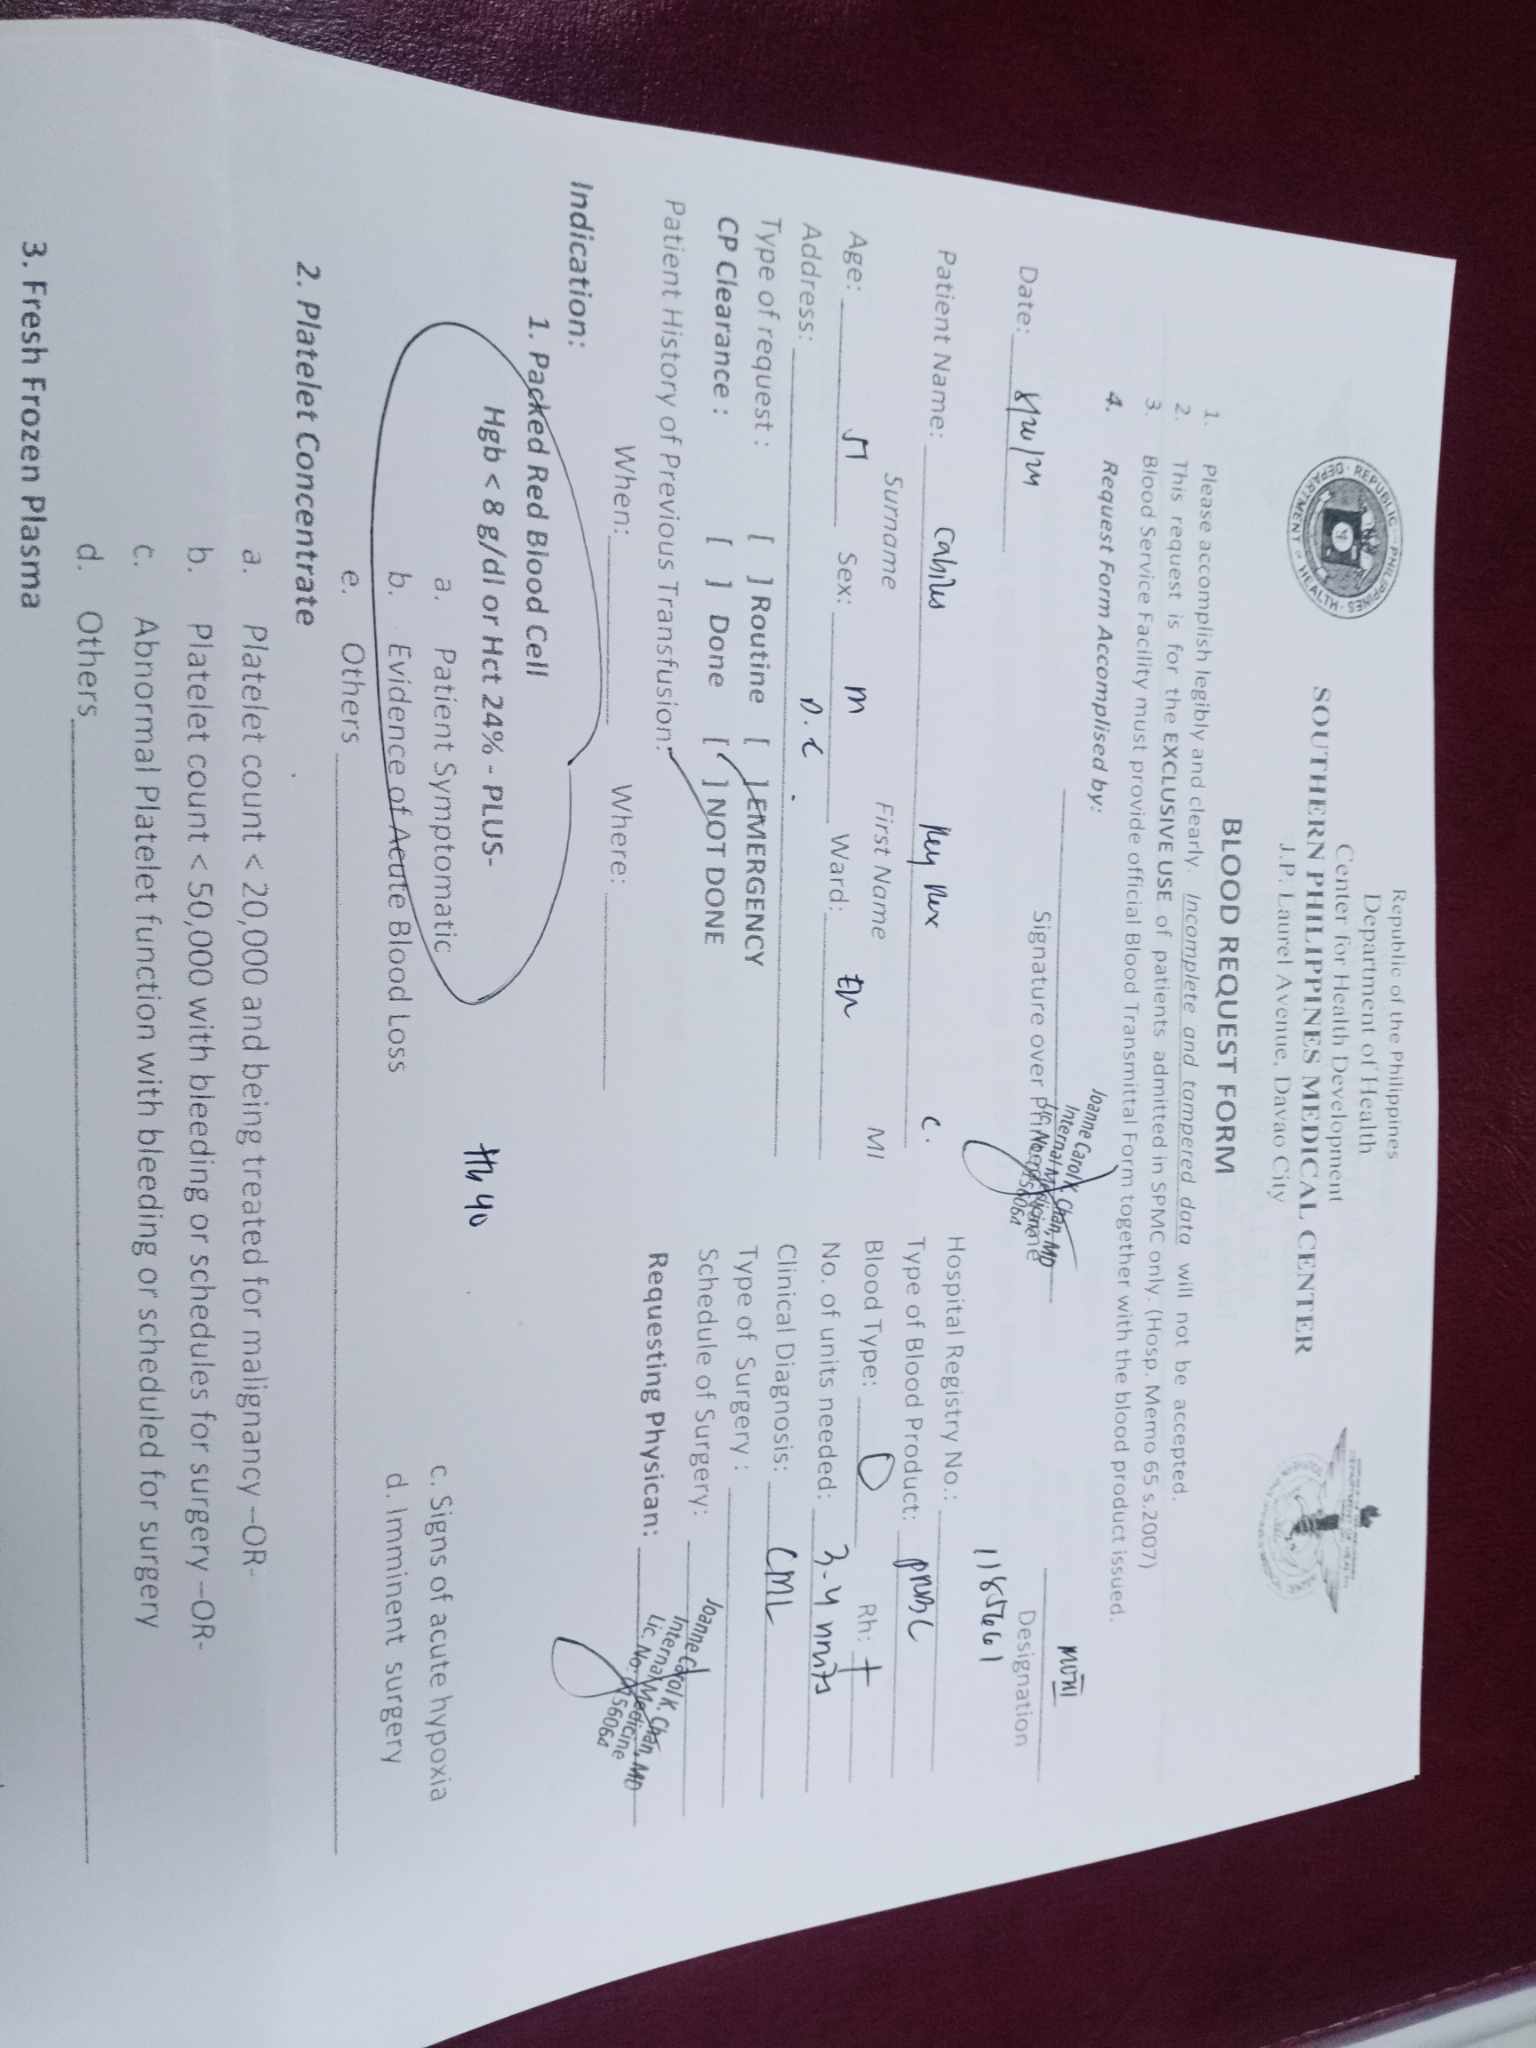 Republic of the Philippines
Department of Health
Center for Health Development
SOUTHERN PHILIPPINES MEDICAL CENTER
J.P. Laurel Avenue, Davao City
BLOOD REQUEST FORM
1. Please accomplish legibly and clearly. Incomplete and tampered data will not be accepted.
2. This request is for the EXCLUSIVE USE of patients admitted in SPMC only. (Hosp. Memo 65 s.2007)
3. Blood Service Facility must provide official Blood Transmittal Form together with the blood product issued.
4. Request Form Accomplised by:
Joanne Carol K. Chan, MD
Internal Medicine
Lic. No.
Signature over Printed Name
Designation
Date:
Hospital Registry No.: 1185661
Patient Name: Cabiles Rey Rex C.
Surname First Name MI
Type of Blood Product: PRBC
Age: 57 Sex: M Ward: ER
Blood Type: O Rh: +
Address: D.C.
No. of units needed: 3-4 units
Type of request : [ ] Routine [ ] EMERGENCY
Clinical Diagnosis: CML
CP Clearance : [ ] Done [ ] NOT DONE
Type of Surgery :
Patient History of Previous Transfusion:
Schedule of Surgery:
When: Where:
Requesting Physican:
Joanne Carol K. Chan, MD
Internal Medicine
Lic. No.
Indication:
1. Packed Red Blood Cell
Hgb < 8 g/dl or Hct 24% - PLUS-
40
a. Patient Symptomatic
c. Signs of acute hypoxia
b. Evidence of Acute Blood Loss
d. Imminent surgery
e. Others
2. Platelet Concentrate
a. Platelet count < 20,000 and being treated for malignancy –OR-
b. Platelet count < 50,000 with bleeding or schedules for surgery –OR-
c. Abnormal Platelet function with bleeding or scheduled for surgery
d. Others
3. Fresh Frozen Plasma